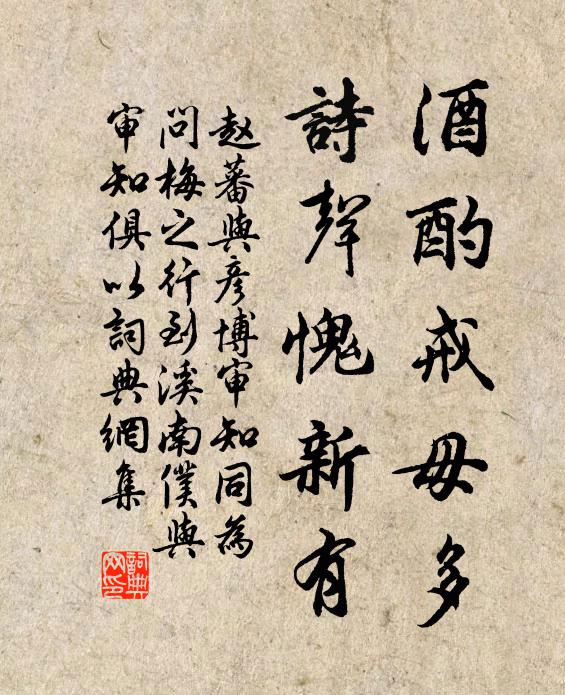 酒酌戒毋多
詩聲愧新有
赵蕃與彦博审知同為
问梅之行到溪南僕與
审知俱以詞典網集
詞典网印